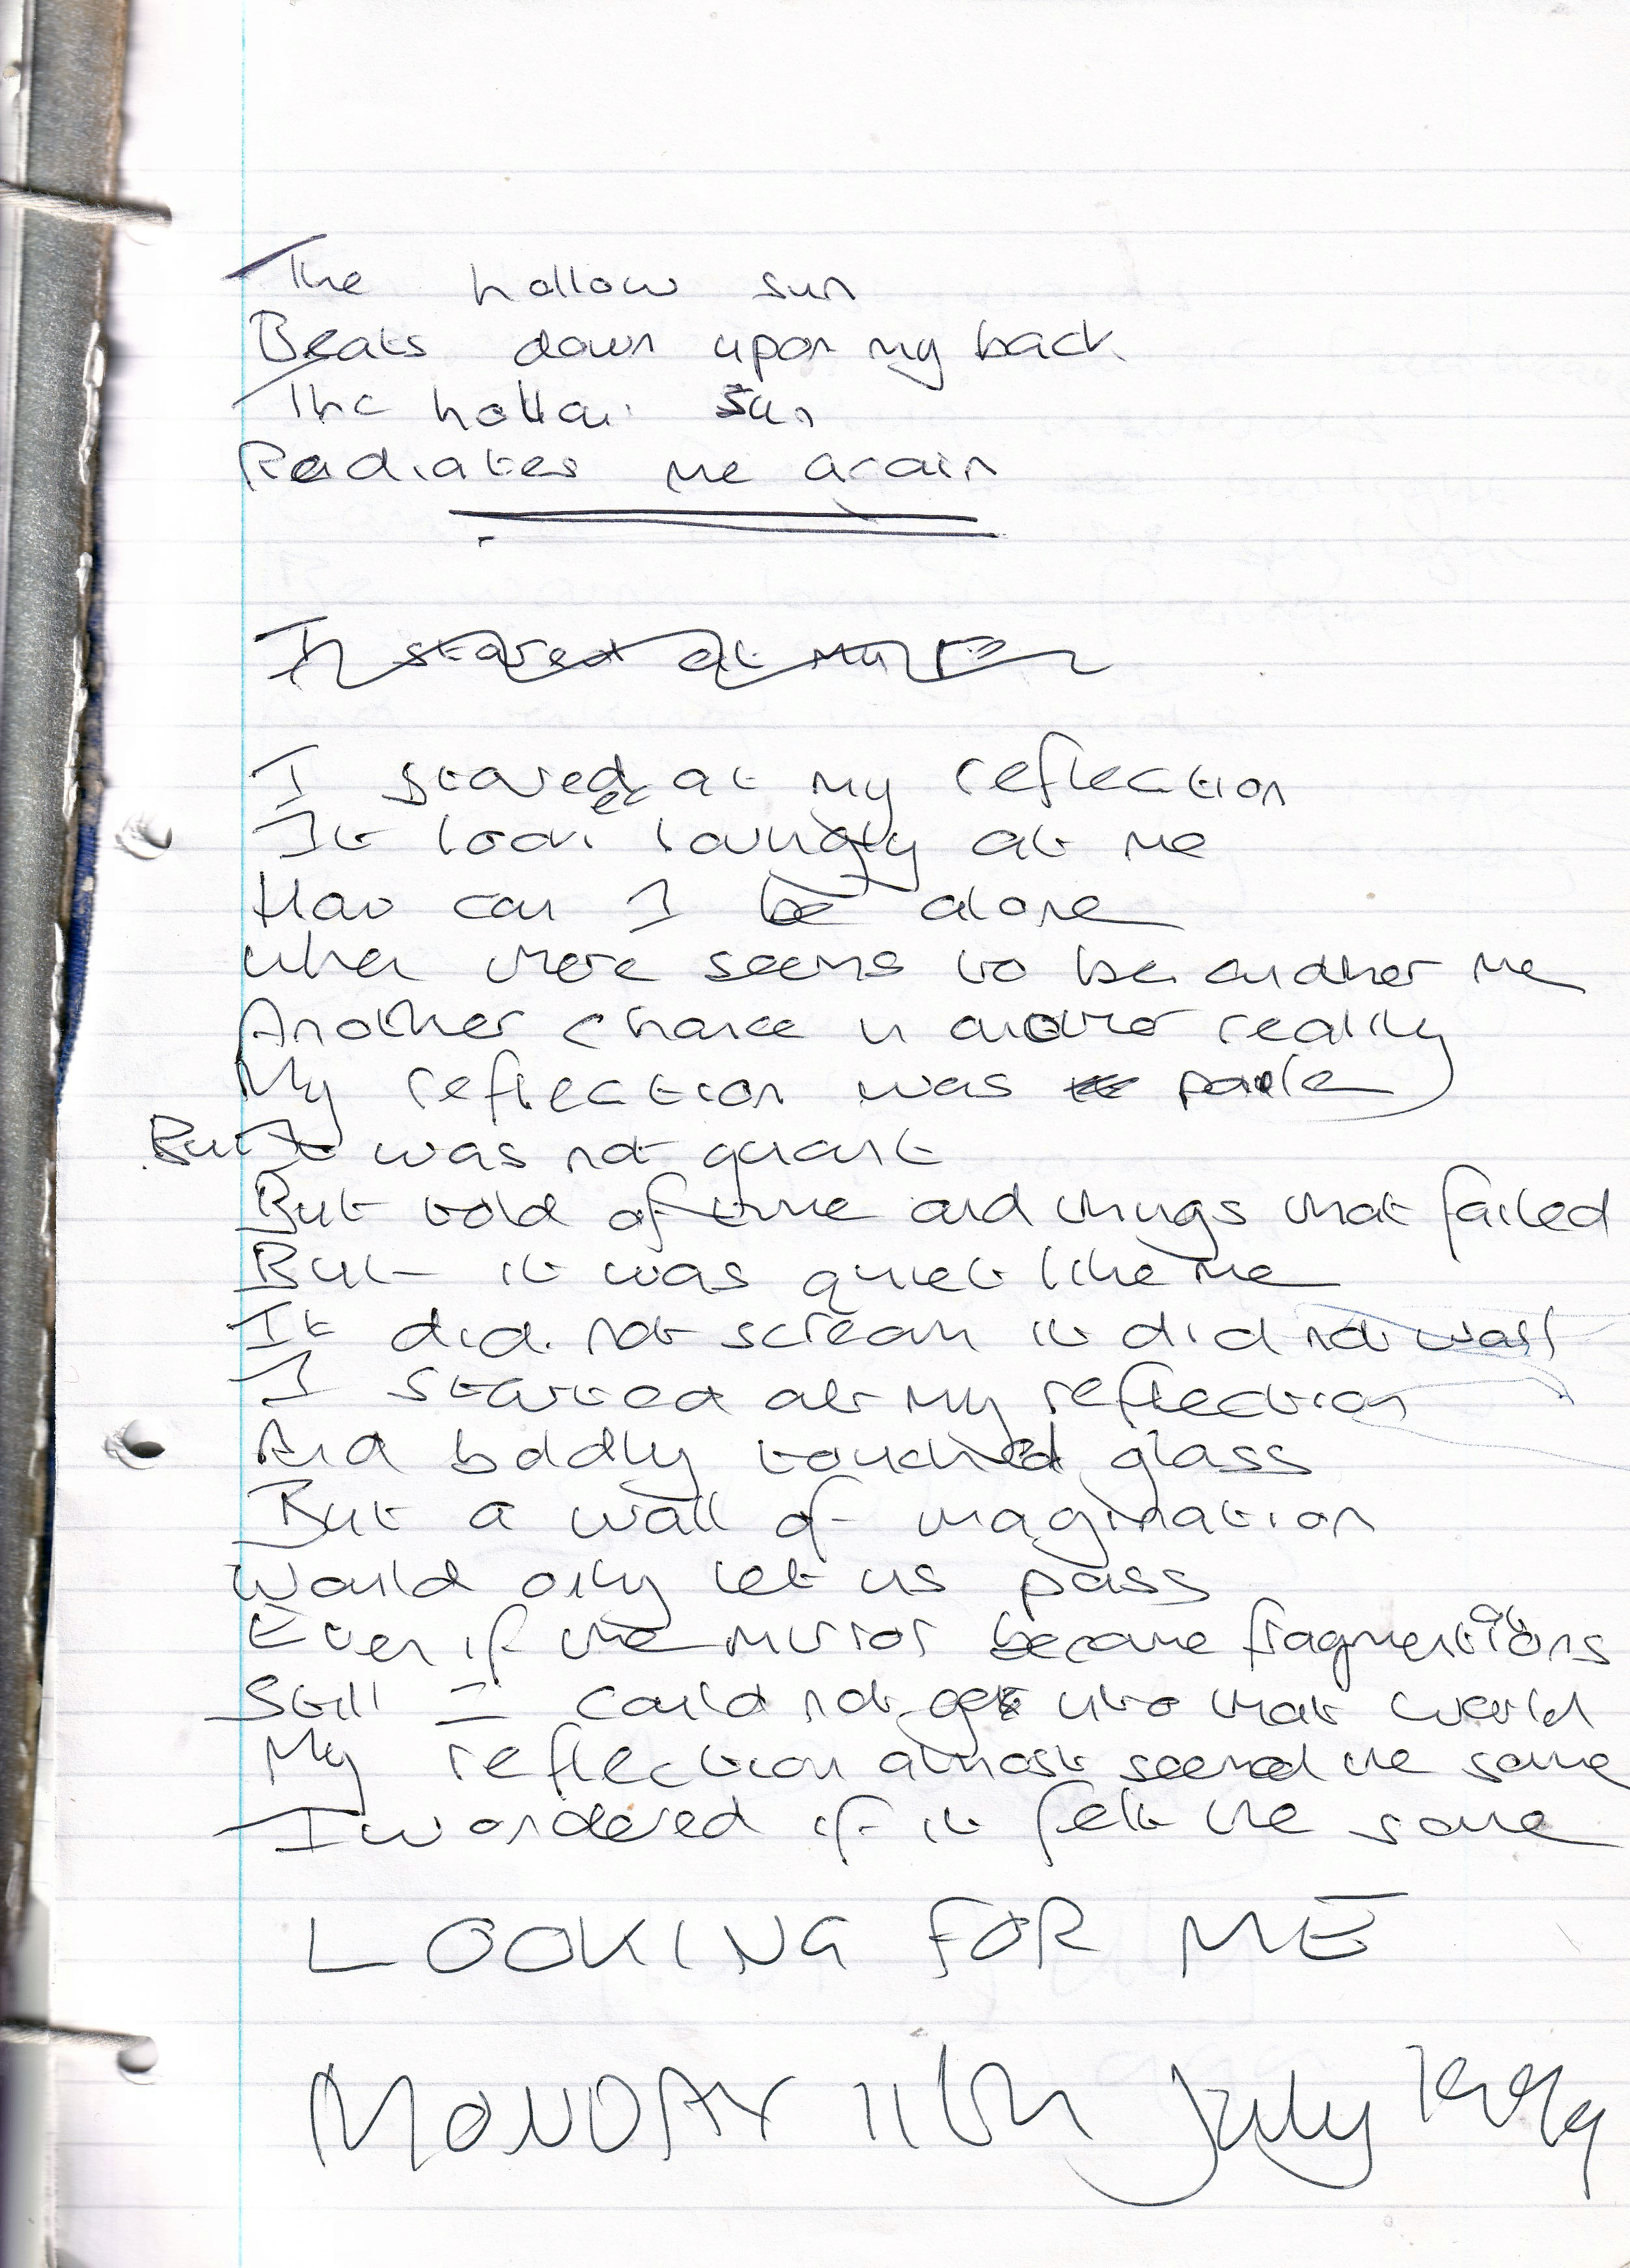 The hollow sun
Beats down upon my back
The hollow sun
Radiates me again
I stared at my re
I stared at my reflection
It looked lovingly at me
How can I be alone
When there seems to be another me
Another chance in another reality
My reflection was pale
But was not quiet
But told of time and things that failed
But it was quiet like me
It did not scream it did not wail
I stared at my reflection
And boldly touched glass
But a wall of imagination
Would only let us pass
Even if the mirror became fragmentations
Still I could not get into that world
My reflection almost seemed the same
I wondered if it felt the same
LOOKING FOR ME
MONDAY 11th July 1994